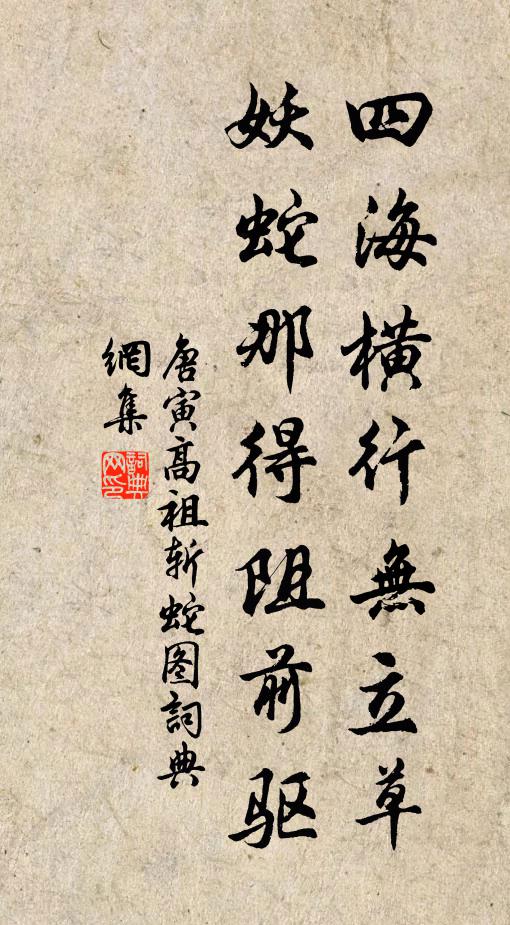 四海横行無立草
妖蛇那得阻前驱
唐寅高祖斩蛇图詞典
網集
詞典
网印